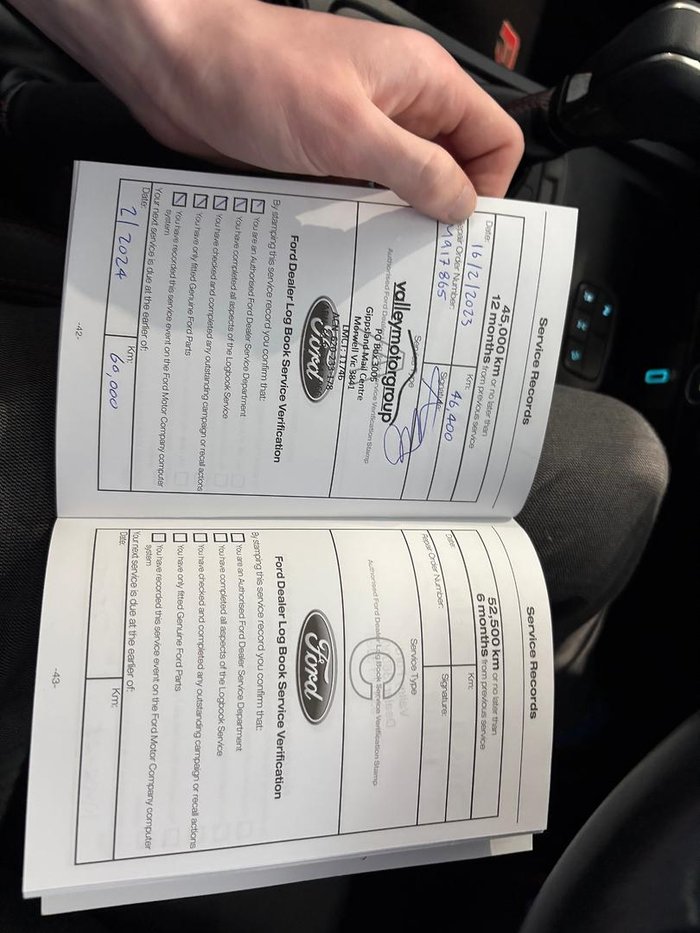 Service Records
45,000 km or no later than
12 months from previous service
Date: 16/2/2023
Km: 46,400
Repair Order Number:
MA17865
Signature:
Service Type
valleymotorgroup
Authorised Ford Dealer Log Book Service Verification Stamp
PO Box 3005
Gippsland Mail Centre
Morwell Vic 3841
LMCT: 11746
Ford
Ford Dealer Log Book Service Verification
By stamping this service record you confirm that:
You are an Authorised Ford Dealer Service Department
You have completed all aspects of the Logbook Service
You have checked and completed any outstanding campaign or recall actions
You have only fitted Genuine Ford Parts
You have recorded this service event on the Ford Motor Company computer
system
Your next service is due at the earlier of:
Date: 2/2024
Km: 60,000
-42-
Service Records
52,500 km or no later than
6 months from previous service
Date:
Km:
Repair Order Number:
Signature:
Service Type
Authorised Ford Dealer Log Book Service Verification Stamp
Ford
Ford Dealer Log Book Service Verification
By stamping this service record you confirm that:
You are an Authorised Ford Dealer Service Department
You have completed all aspects of the Logbook Service
You have checked and completed any outstanding campaign or recall actions
You have only fitted Genuine Ford Parts
You have recorded this service event on the Ford Motor Company computer
system
Your next service is due at the earlier of:
Date:
Km:
-43-